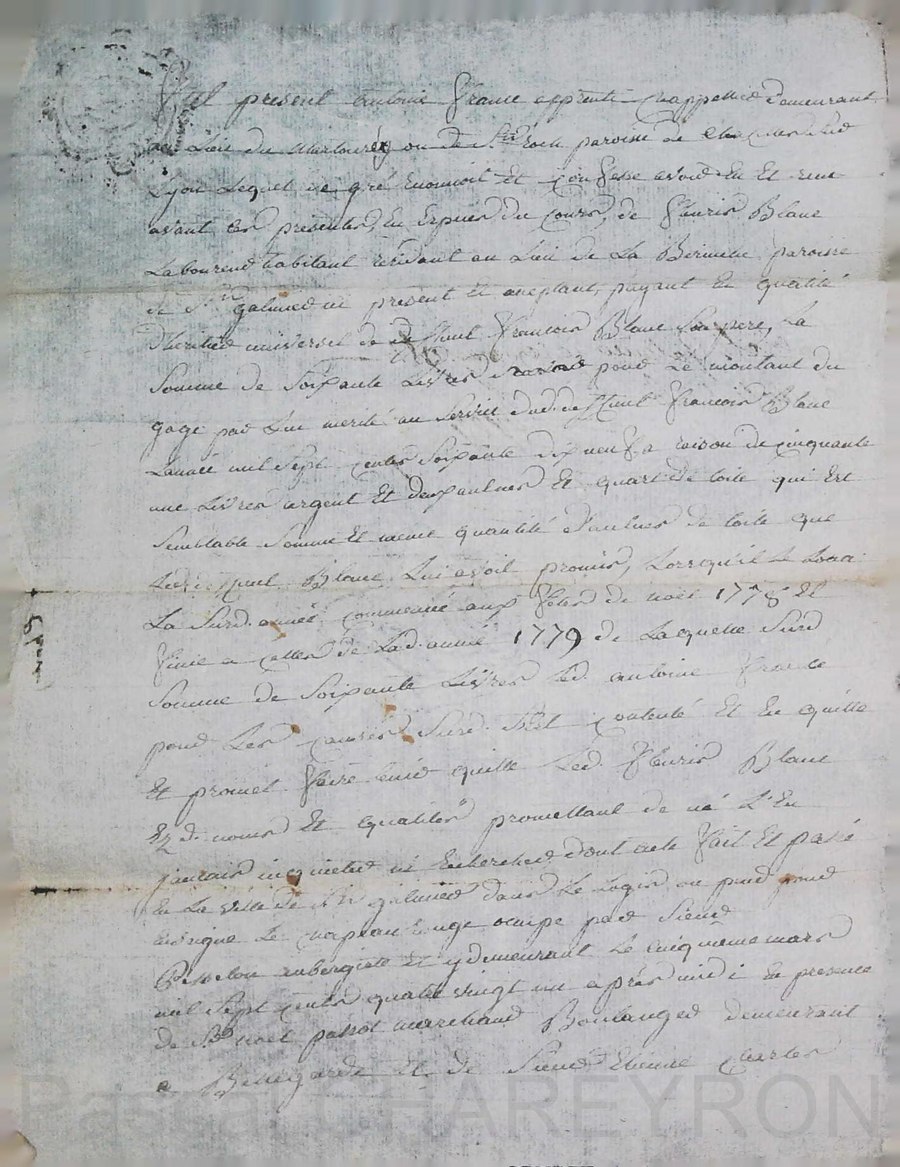 Fut présent antoine france apprenti chappellier demeurant
au Lieu du ou de St Roch paroisse de
Lyon Lequel de gré reconnoit et confesse avoir eu et reçu
avant ces presentes, en Espèces du Cours, de fleuris Blanc
Laboureur habitant résidant au Lieu de La paroisse
de St galmier ici présent et acceptant, payant en qualité
d'heritier universel de deffunt francois Blanc Son pere, La
Somme de Soixante Livres pour Le montant du
gage par Lui merité au Service dud. deffunt francois Blanc
L'année mil Sept Cents Soixante dix neuf a raison de cinquante
une Livres argent Et aulnes Et quart de toile qui Est
Semblable Somme Et même quantité d'aulnes de toile que
Led. deffunt Blanc Lui avoit promis, Lorsqu'il Le Loua
La Surd. année commencé aux fêtes de noel 1778 Et
finie a Celles de Lad. année 1779 de Laquelle Surd
Somme de Soixante Livres Led. antoine france
pour Les Causes Surd. S'est contenté Et En quitte
Et promet faire tenir quitte Led. fleuris Blanc
Ezd. noms Et qualités promettant de ne L'En
jamais inquieter ni Rechercher dont acte fait Et passé
En La ville de St galmier dans Le Logis ou pend pour
Enseigne Le chapeau rouge occupé par Sieur
aubergiste Et y demeurant Le cinquieme mars
mil Sept Cents quatre vingt un après midi En présence
de Sr noel marchand Boulanger demeurant
a Bellegarde Et de Sieur Etienne Charles
Pascal CHAREYRON